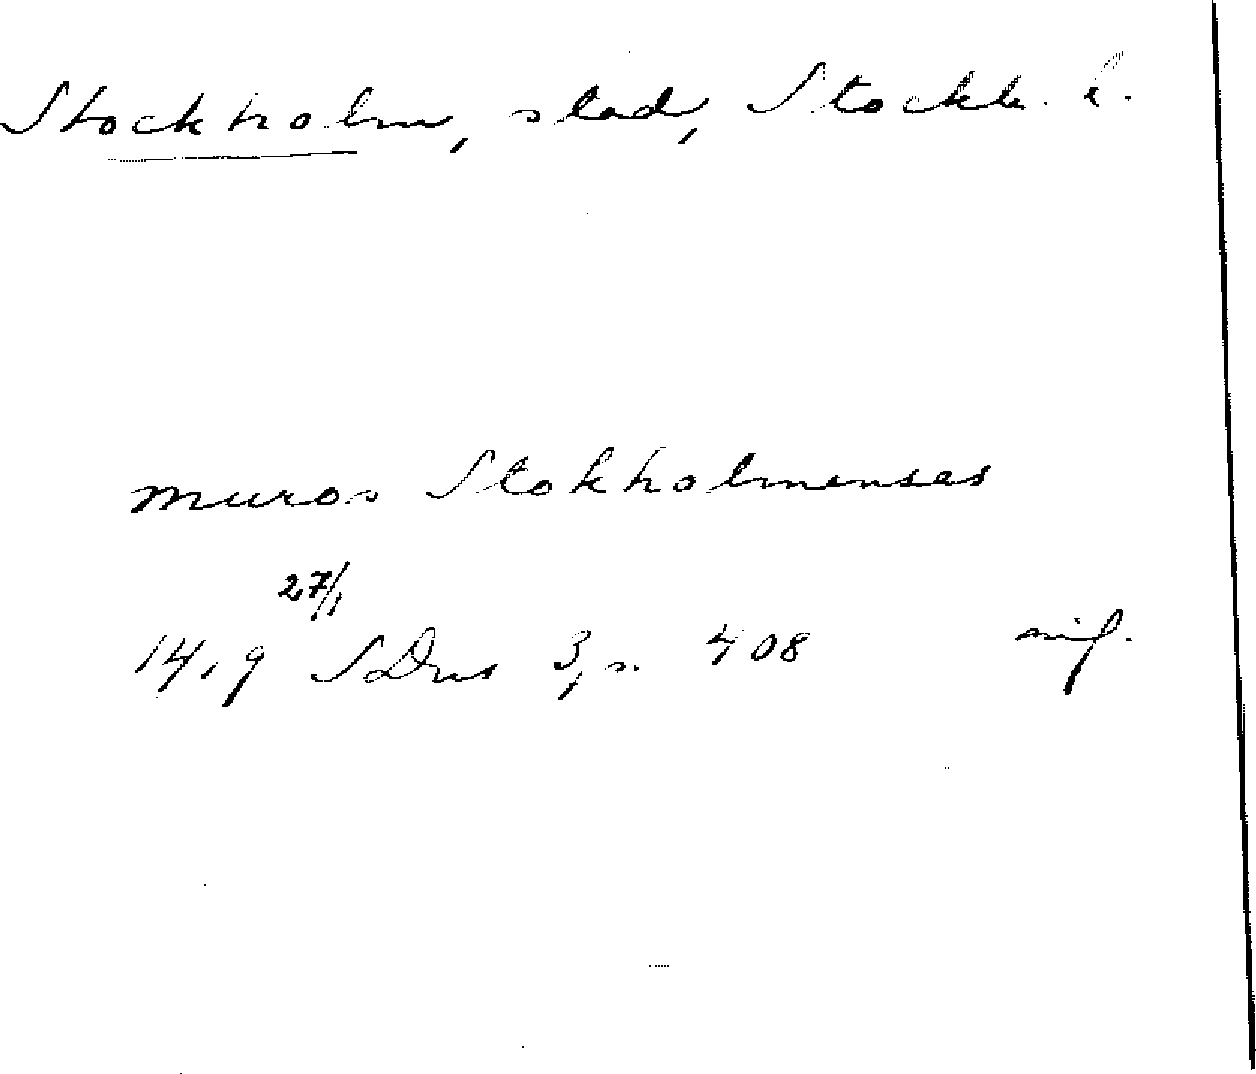 Stockholm, stad, Stockh. l.
muros Stokholmenses
27/1
1419 SDns 3, s. 408